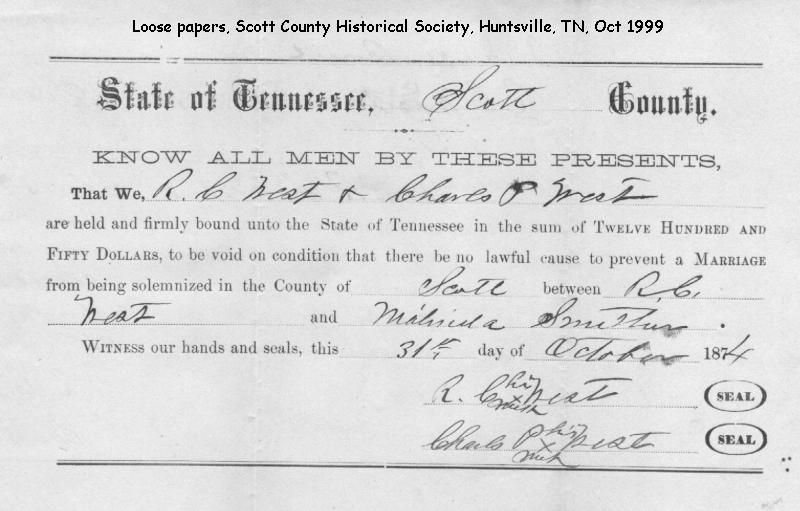 Loose papers, Scott County Historical Society, Huntsville, TN, Oct 1999
State of Tennessee, Scott County.
KNOW ALL MEN BY THESE PRESENTS,
That We, R. C West & Charles P West
are held and firmly bound unto the State of Tennessee in the sum of TWELVE HUNDRED AND
FIFTY DOLLARS, to be void on condition that there be no lawful cause to prevent a MARRIAGE
from being solemnized in the County of Scott between R.C.
West and Malinda .
WITNESS our hands and seals, this 31st day of October 1874
R. C his x mark West SEAL
Charles P his x mark West SEAL